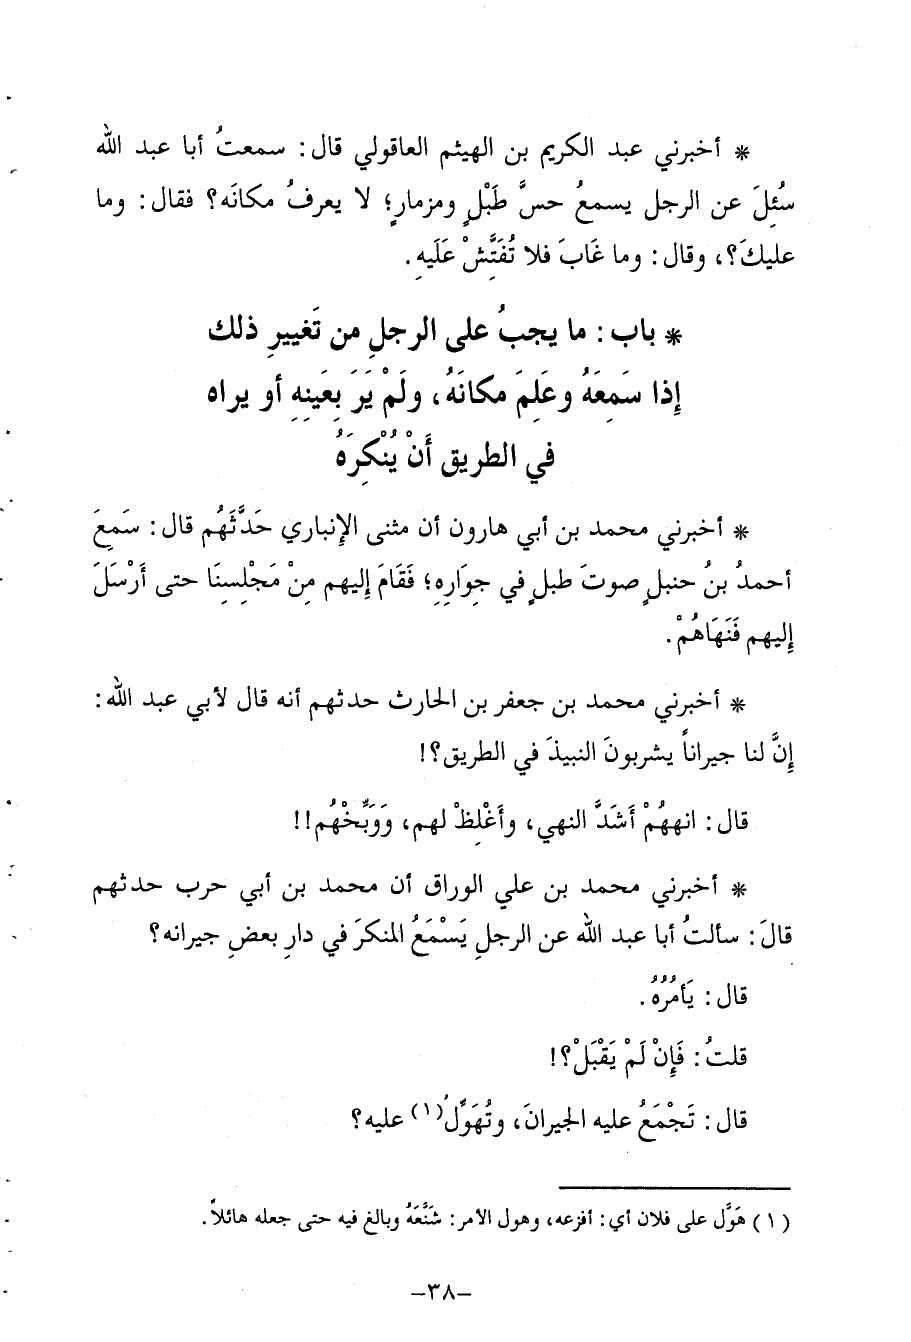 * أخبرني عبد الكريم بن الهيثم العاقولي قال: سمعتُ أبا عبد الله
سُئِلَ عن الرجل يسمعُ حسَّ طَبْلٍ ومزمارٍ؛ لا يعرفُ مكانَه؟ فقال: وما
عليكَ؟، وقال: وما غَابَ فلا تُفَتِّشْ عَلَيهِ.
* باب: ما يجبُ على الرجلِ من تَغييرِ ذلك
إذا سَمِعَهُ وعَلِمَ مكانَهُ، ولَمْ يَرَ بِعَينِهِ أو يراه
في الطريق أَنْ يُنْكِرَهُ
* أخبرني محمد بن أبي هارون أن مثنى الإنباري حَدَّثَهُم قال: سَمِعَ
أحمدُ بنُ حنبلٍ صوتَ طبلٍ في جِوَارِهِ؛ فَقَامَ إليهم مِنْ مَجْلِسِنَا حتى أَرْسَلَ
إليهم فَنَهَاهُمْ.
* أخبرني محمد بن جعفر بن الحارث حدثهم أنه قال لأبي عبد الله:
إنَّ لنا جيراناً يشربونَ النبيذَ في الطريق؟!
قال: انههُمْ أَشَدَّ النهي، وأَغْلِظْ لهم، وَوَبِّخْهُم!!
* أخبرني محمد بن علي الوراق أن محمد بن أبي حرب حدثهم
قالَ: سألتُ أبا عبد الله عن الرجلِ يَسْمَعُ المنكرَ في دارِ بعضِ جيرانه؟
قال: يَأمُرُهُ.
قلتُ: فَإِنْ لَمْ يَقْبَلْ؟!
قال: تَجْمَعُ عليه الجيرانَ، وتُهَوِّلُ(١) عليه؟
(١) هَوَّل على فلان أي: أفزعه، وهول الأمر: شَنَّعَهُ وبالغ فيه حتى جعله هائلاً.
–٣٨–